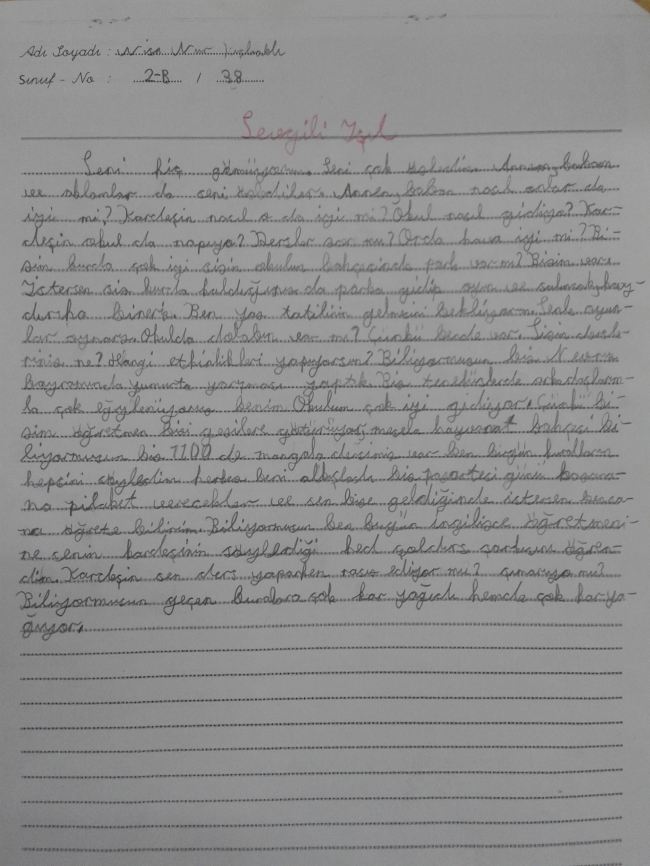 Adı Soyadı : Nisa Nur
Sınıf - No : 2-B / 38
Sevgili Işıl
Seni hiç Seni çok Annen, baban
ve ablanlar da seni Annen, baban nasıl onlar da
iyi mi? Kardeşin nasıl o da iyi mi? Okul nasıl gidiyo? Kar-
deşin okul da napıyo? Dersler zor mu? Orda hava iyi mi? Bi-
zim burda çok iyi sizin okulun bahçesinde park var mı? Bizim var.
İstersen siz burda da parka gidip oyun ve salıncak, kay-
dırıka bineriz. Ben yaz tatilinin gelmesini bekliyorum. Senle oyun-
lar oynarız. Okulda dolabın var mı? Çünkü bende var. Sizin dersle-
riniz ne? Hangi etkinlikleri yapıyorsun? Biliyormusun biz Nevruz
bayramında yumurta yarışması yaptık. Biz teneffüslerde arkadaşlarım-
la çok eğyleniyoruz benim Okulum çok iyi gidiyor. Çünkü bi-
zim öğretmen bizi gezilere götürüyor mesela hayvanat bahçesi bi-
liyormusun biz de mangala dersimiz var ben bugün kuralların
hepsini söyledim herkes beni alkışladı biz pazartesi günü
na pilaket verecekler ve sen bize geldiğinde istersen
na öğrete bilirim. Biliyormusun ben bugün ingilizce öğretmeni-
ne senin kardeşinin söylediği hed şoldırs şarkısını öğren-
dim. Kardeşin sen ders yaparken ediyor mu?
Biliyormusun geçen buralara çok kar yağdı hemde çok kar ya-
ğıyor.